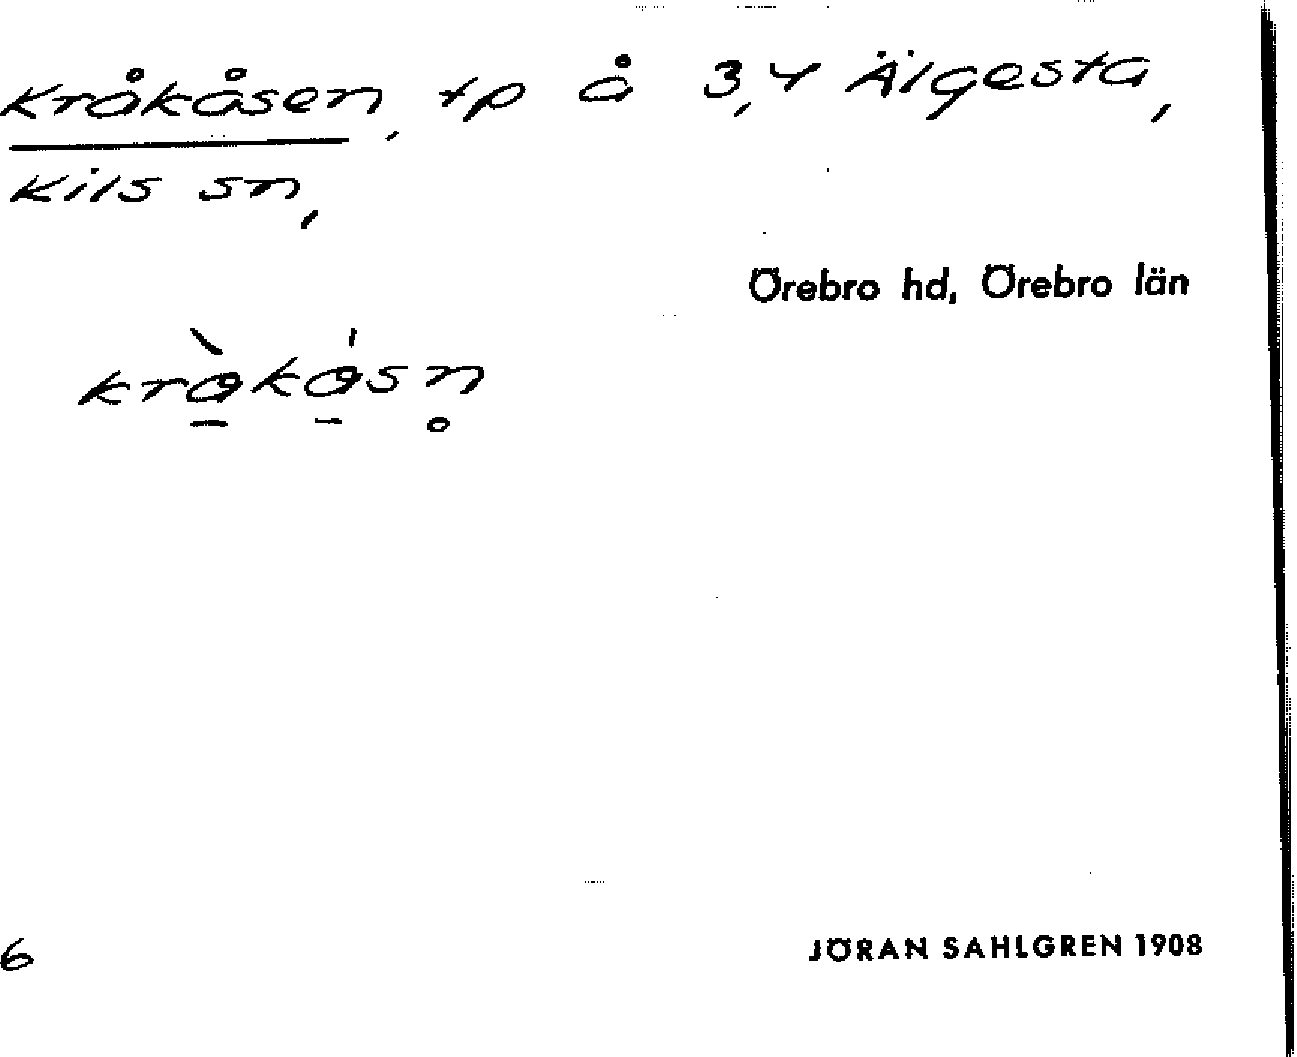 Kråkåsen, tp å 3,4 Älgesta,
Kils sn,
Örebro hd, Örebro län
kròkósn̥
6
JÖRAN SAHLGREN 1908